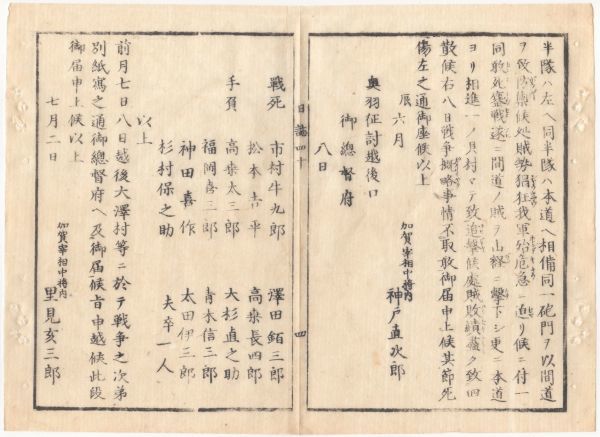 半隊ハ左ヘ同半隊ハ本道ヘ相備同一砲門ヲ以間道
ヲ致防禦候処賊勢猖狂我軍殆危急ニ迫リ候ニ付一
同敢死奮戦遂ニ間道ノ賊ヲ山経ニ撃下シ更ニ本道
ヨリ相進一ノ貝村マテ致追撃候處賊敗績盡ク致四
散候右八日戦争概略事情不取敢御届申上候其節死
傷左之通御座候以上
辰六月
加賀宰相中将内
神戸直次郎
奥羽征討越後口
御總督府
八日
日誌四十
四
戦死
市村牛九郎
澤田銆三郎
松本吉平
高桒長四郎
手負
高桒太三郎
大杉直之助
福岡喜三郎
青木信三郎
神田喜作
太田伊三郎
杉村保之助
夫卒一人
以上
前月七日八日越後大澤村等ニ於テ戦争之次第
別紙寫之通御總督府ヘ及御届候旨申越候此段
御届申上候以上
七月二日
加賀宰相中将内
里見亥三郎